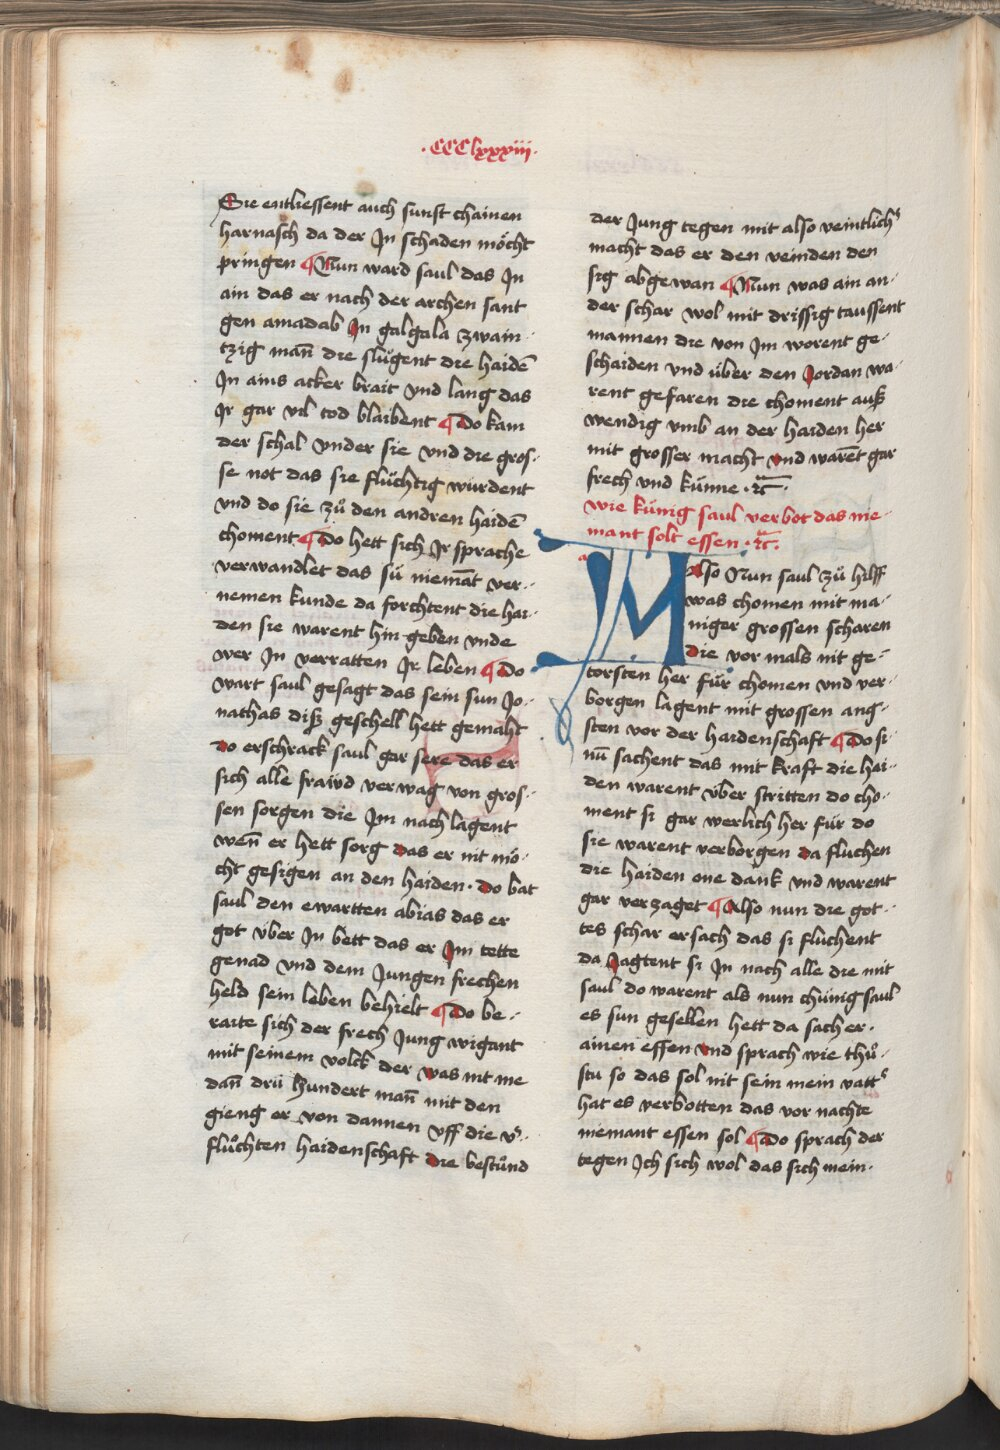 ·CCClxxxiii·
Sie entliessent auch sunst chainen
harnasch da der Jn schaden möcht
pringen ¶ Nun ward saul das Jn
ain das er nach der archen sant
gen amadab Jn galgala zwain-
tzig man̄ die slůgent die haidē
Jn ains acker brait vnd lang das
Jr gar vil tod blaibent ¶ Do kam
der schal vnder sie vnd die gros-
se not das sie flüchtig wurdent
vnd do sie zů den andren haidē
choment ¶ Do hett sich Jr sprache
verwandlet das sü niemāt ver-
nemen kunde da forchtent die hai-
den sie warent hin geben vnde
wer Jn verratten Jr leben ¶ Do
wart saul gesagt das sein sun Jo-
nathas diß geschell hett gemaht
do erschrack saul gar sere das er
sich alle fraiwd verwag von gros-
sen sorgen die Jm nach lagent
wen̄ er hett sorg das er nit mö-
cht gesigen an den haiden· Do bat
saul den ewartten abias das er
got vber Jn bett das er Jm tette
genad vnd dem Jungen frechen
held sein leben behielt ¶ Do be-
raite sich der frech Jung wigant
mit seinem volck der was nit me
dan̄ drü hundert man̄ mit den
gieng er von dannen vff die v̕-
flůchten haidenschaft die bestůnd
der Jung tegen mit also veintlich̕
macht das er den veinden den
sig abgewan ¶ Nun was ain an-
der schar wol mit drissig taussent
mannen die von Jm worent ge-
schaiden vnd über den Jordan wa-
rent gefaren die choment auß
wendig vmb an der haiden her
mit grosser macht vnd warēt gar
frech vnd künne ·ꝛc̄·
wie künig saul verbot das nie-
mant solt essen ·ꝛc̄·
Also Nun saul zů hilff
was chomen mit ma-
niger grossen scharen
die vor mals nit ge-
torsten her für chomen vnd ver-
borgen lagent mit grossen ang-
sten vor der haidenschaft ¶ Do si
nū sachent das mit kraft die hai-
den warent vber stritten do cho-
ment si gar werlich her für do
sie warent verborgen da fluchen
die haiden one dank vnd warent
gar verzaget ¶ Also nun die got-
tes schar ersach das si fluchent
da Jagtent si Jn nach alle die mit
saul do warent als nun chünig saul
es sun gesellen hett da sach er·
ainen essen vnd sprach wie thů-
stu so das sol nit sein mein vatt̕
hat es verbotten das vor nachte
niemant essen sol ¶ Do sprach der
tegen Jch sich wol das sich mein·